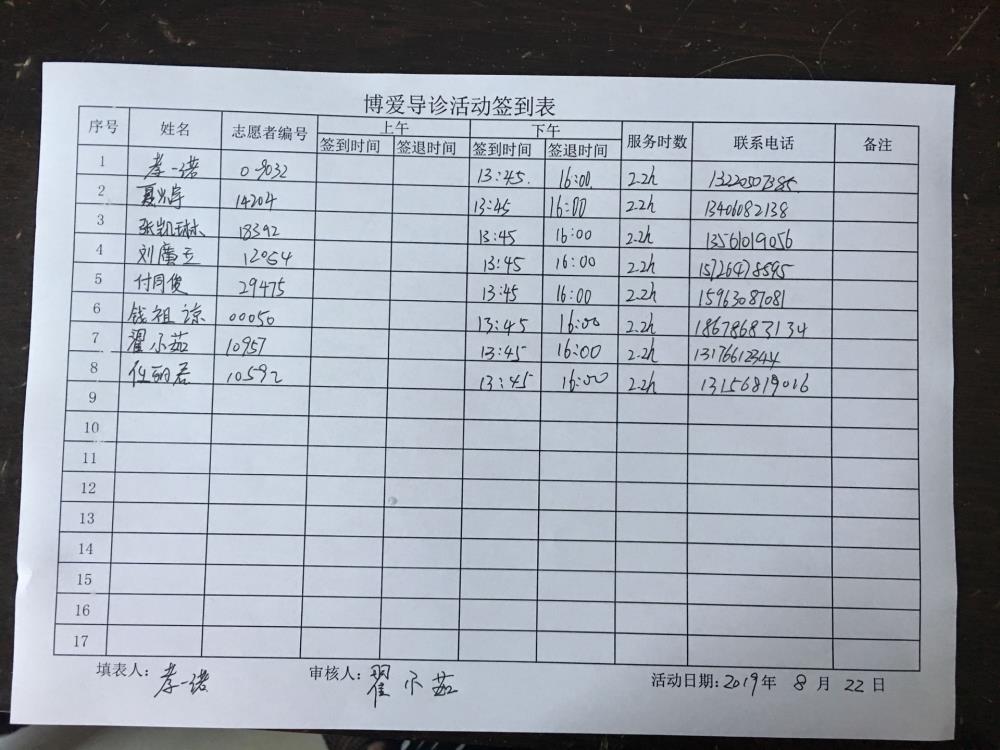 博爱导诊活动签到表
序号 姓名 志愿者编号 上午 下午 服务时数 联系电话 备注
签到时间 签退时间 签到时间 签退时间
1 李一诺 09032 13:45. 16:00. 2.2h 13220507385
2 14204 13:45 16:00 2.2h 13406082138
3 张凯琳 18392 13:45 16:00 2.2h 13561019056
4 刘广云 12054 13:45 16:00 2.2h 15726478595
5 付同俊 29475 13:45 16:00 2.2h 15963087081
6 钱祖谅 00050 13:45 16:00 2.2h 18678683134
7 翟尔茹 10957 13:45 16:00 2.2h 13176612344
8 任丽君 10592 13:45 16:00 2.2h 13156819016
9
10
11
12
13
14
15
16
17
填表人: 李一诺 审核人: 翟尔茹 活动日期: 2019年 8 月 22 日